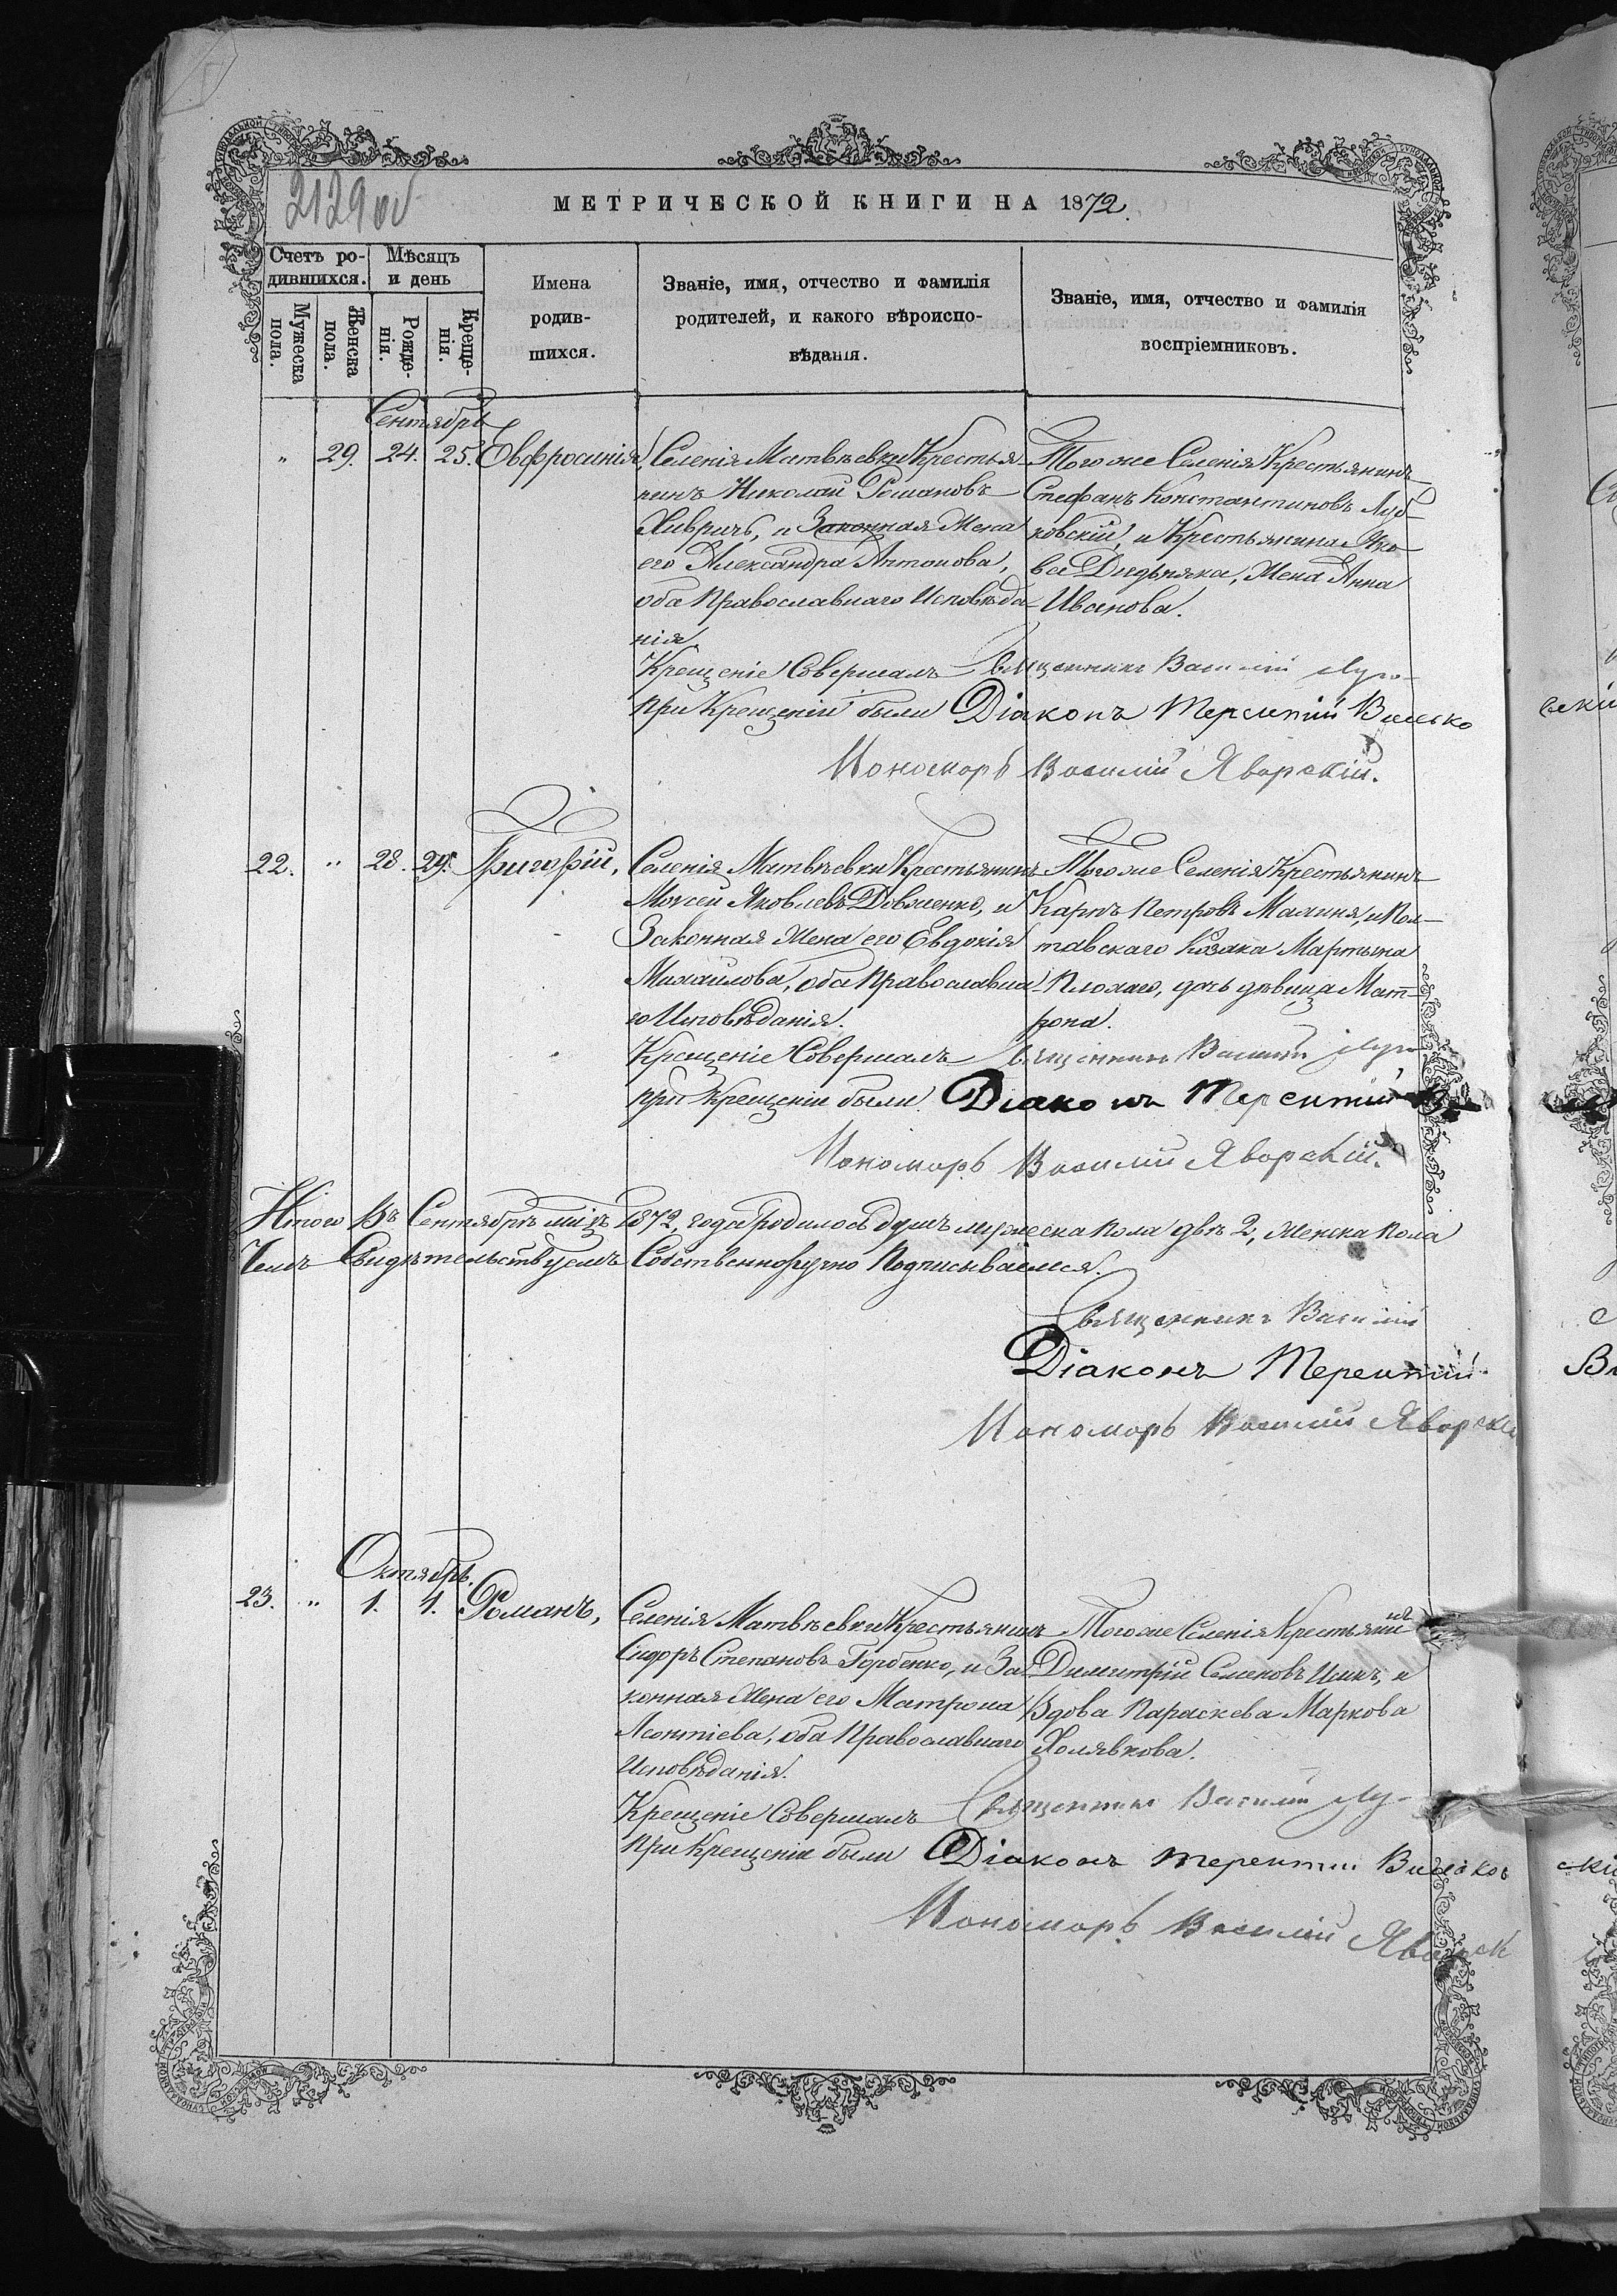 2129 об
МЕТРИЧЕСКОЙ КНИГИ НА 1872.
Счетъ ро-
дившихся.
Мѣсяцъ
и день
Мужеска
пола.
Женска
пола.
Рожде-
нія.
Креще-
нія.
Имена
родив-
шихся.
Званіе, имя, отчество и фамилія
родителей, и какого вѣроиспо-
вѣданія.
Званіе, имя, отчество и фамилія
воспріемниковъ.
Сентябрь
" 29. 24. 25. Евфросинія,
Селенія Матвѣевки Крестья-
нинъ Николай Романовъ
Хивричъ, и Законная Жена
его Александра Антонова,
оба Православнаго Исповѣда-
нія
Того же Селенія Крестьянинъ
Стефанъ Константиновъ Луб-
ковскій, и Крестьянина Яко-
ва Дидьняка, Жена Анна
Иванова.
Крещеніе Совершалъ Священникъ Василій
при Крещеніи были Діаконъ Терентій
Пономарь Василій Яворскій.
22. " 28. 29. Григорій,
Селенія Матвѣевки Крестьянинъ
Моѵсей Яковлевъ Довженко, и
Законная Жена его Евдокія
Михайлова, оба Православна-
го Исповѣданія.
Того же Селенія Крестьянинъ
Карпъ Петровъ Малина, и Пол-
тавскаго Козака Мартына
Плохаго, дочь дѣвица Мат-
рона.
Крещеніе Совершалъ Священникъ Василій
при Крещеніи были Діаконъ Терентій
Пономарь Василій Яворскій.
Итого Въ Сентябрѣ мцѣ 1872, года родилось душъ мужеска пола двѣ 2, женска пола
Чемъ Свидѣтельствуемъ Собственноручно Подписываемся.
Священникъ Василій
Діаконъ Терентій
Пономарь Василій Яворскі
Октябрь.
23. " 1. 1. Романъ,
Селенія Матвѣевки Крестьянинъ
Сидоръ Степановъ Горбенко, и За-
конная Жена его Матрона
Леонтіева, оба Православнаго
Исповѣданія.
Того же Селенія Крестьянинъ
Димитрій Семеновъ и
Вдова Параскева Маркова
Холявкова.
Крещеніе Совершалъ Священникъ Василій
При Крещеніи были Діаконъ Терентій
Пономарь Василій Яворск